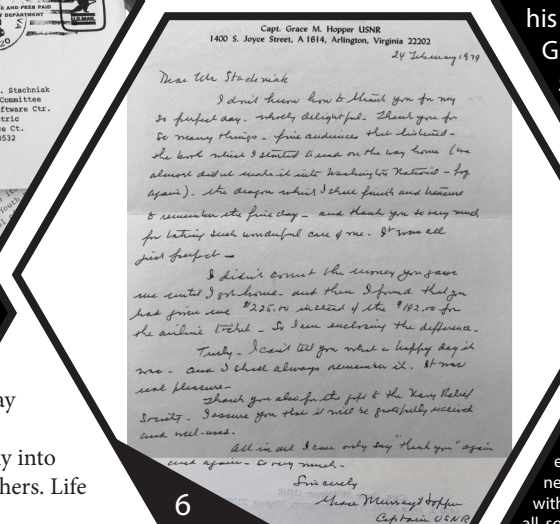 E AND FEES PAID
DEPARTMENT
U.S.MAIL
. Stachniak
Committee
ftware Ctr.
tric
e Ct.
8532
Youth
his
G
Capt. Grace M. Hopper USNR
1400 S. Joyce Street, A 1614, Arlington, Virginia 22202
24 February 1979
Dear Mr Stachniak
I don't know how to thank you for my
so perfect day. wholly delightful. Thank you for
so many things - fine audiences that listened -
the book which I started to read on the way home (we
almost didn't make it into Washington National - fog
again). the dragon which I shall finish and treasure
to remember the fine day - and thank you so very much
for taking such wonderful care of me. It was all
just perfect -
I didn't count the money you gave
me until I got home - and then I found that you
had given me $225.00 instead of the $192.00 for
the airline ticket - So I am enclosing the difference.
Truly - I can't tell you what a happy day it
was - and I shall always remember it. It was
real pleasure -
Thank you also for the gift to the Navy Relief
Society. I assure you that it will be gratefully received
and well-used.
All in all I can only say "thank you" again
and again - so very much -
Sincerely
Grace Murray Hopper
Captain USNR
ay
y into
hers. Life
6
e
ne
with